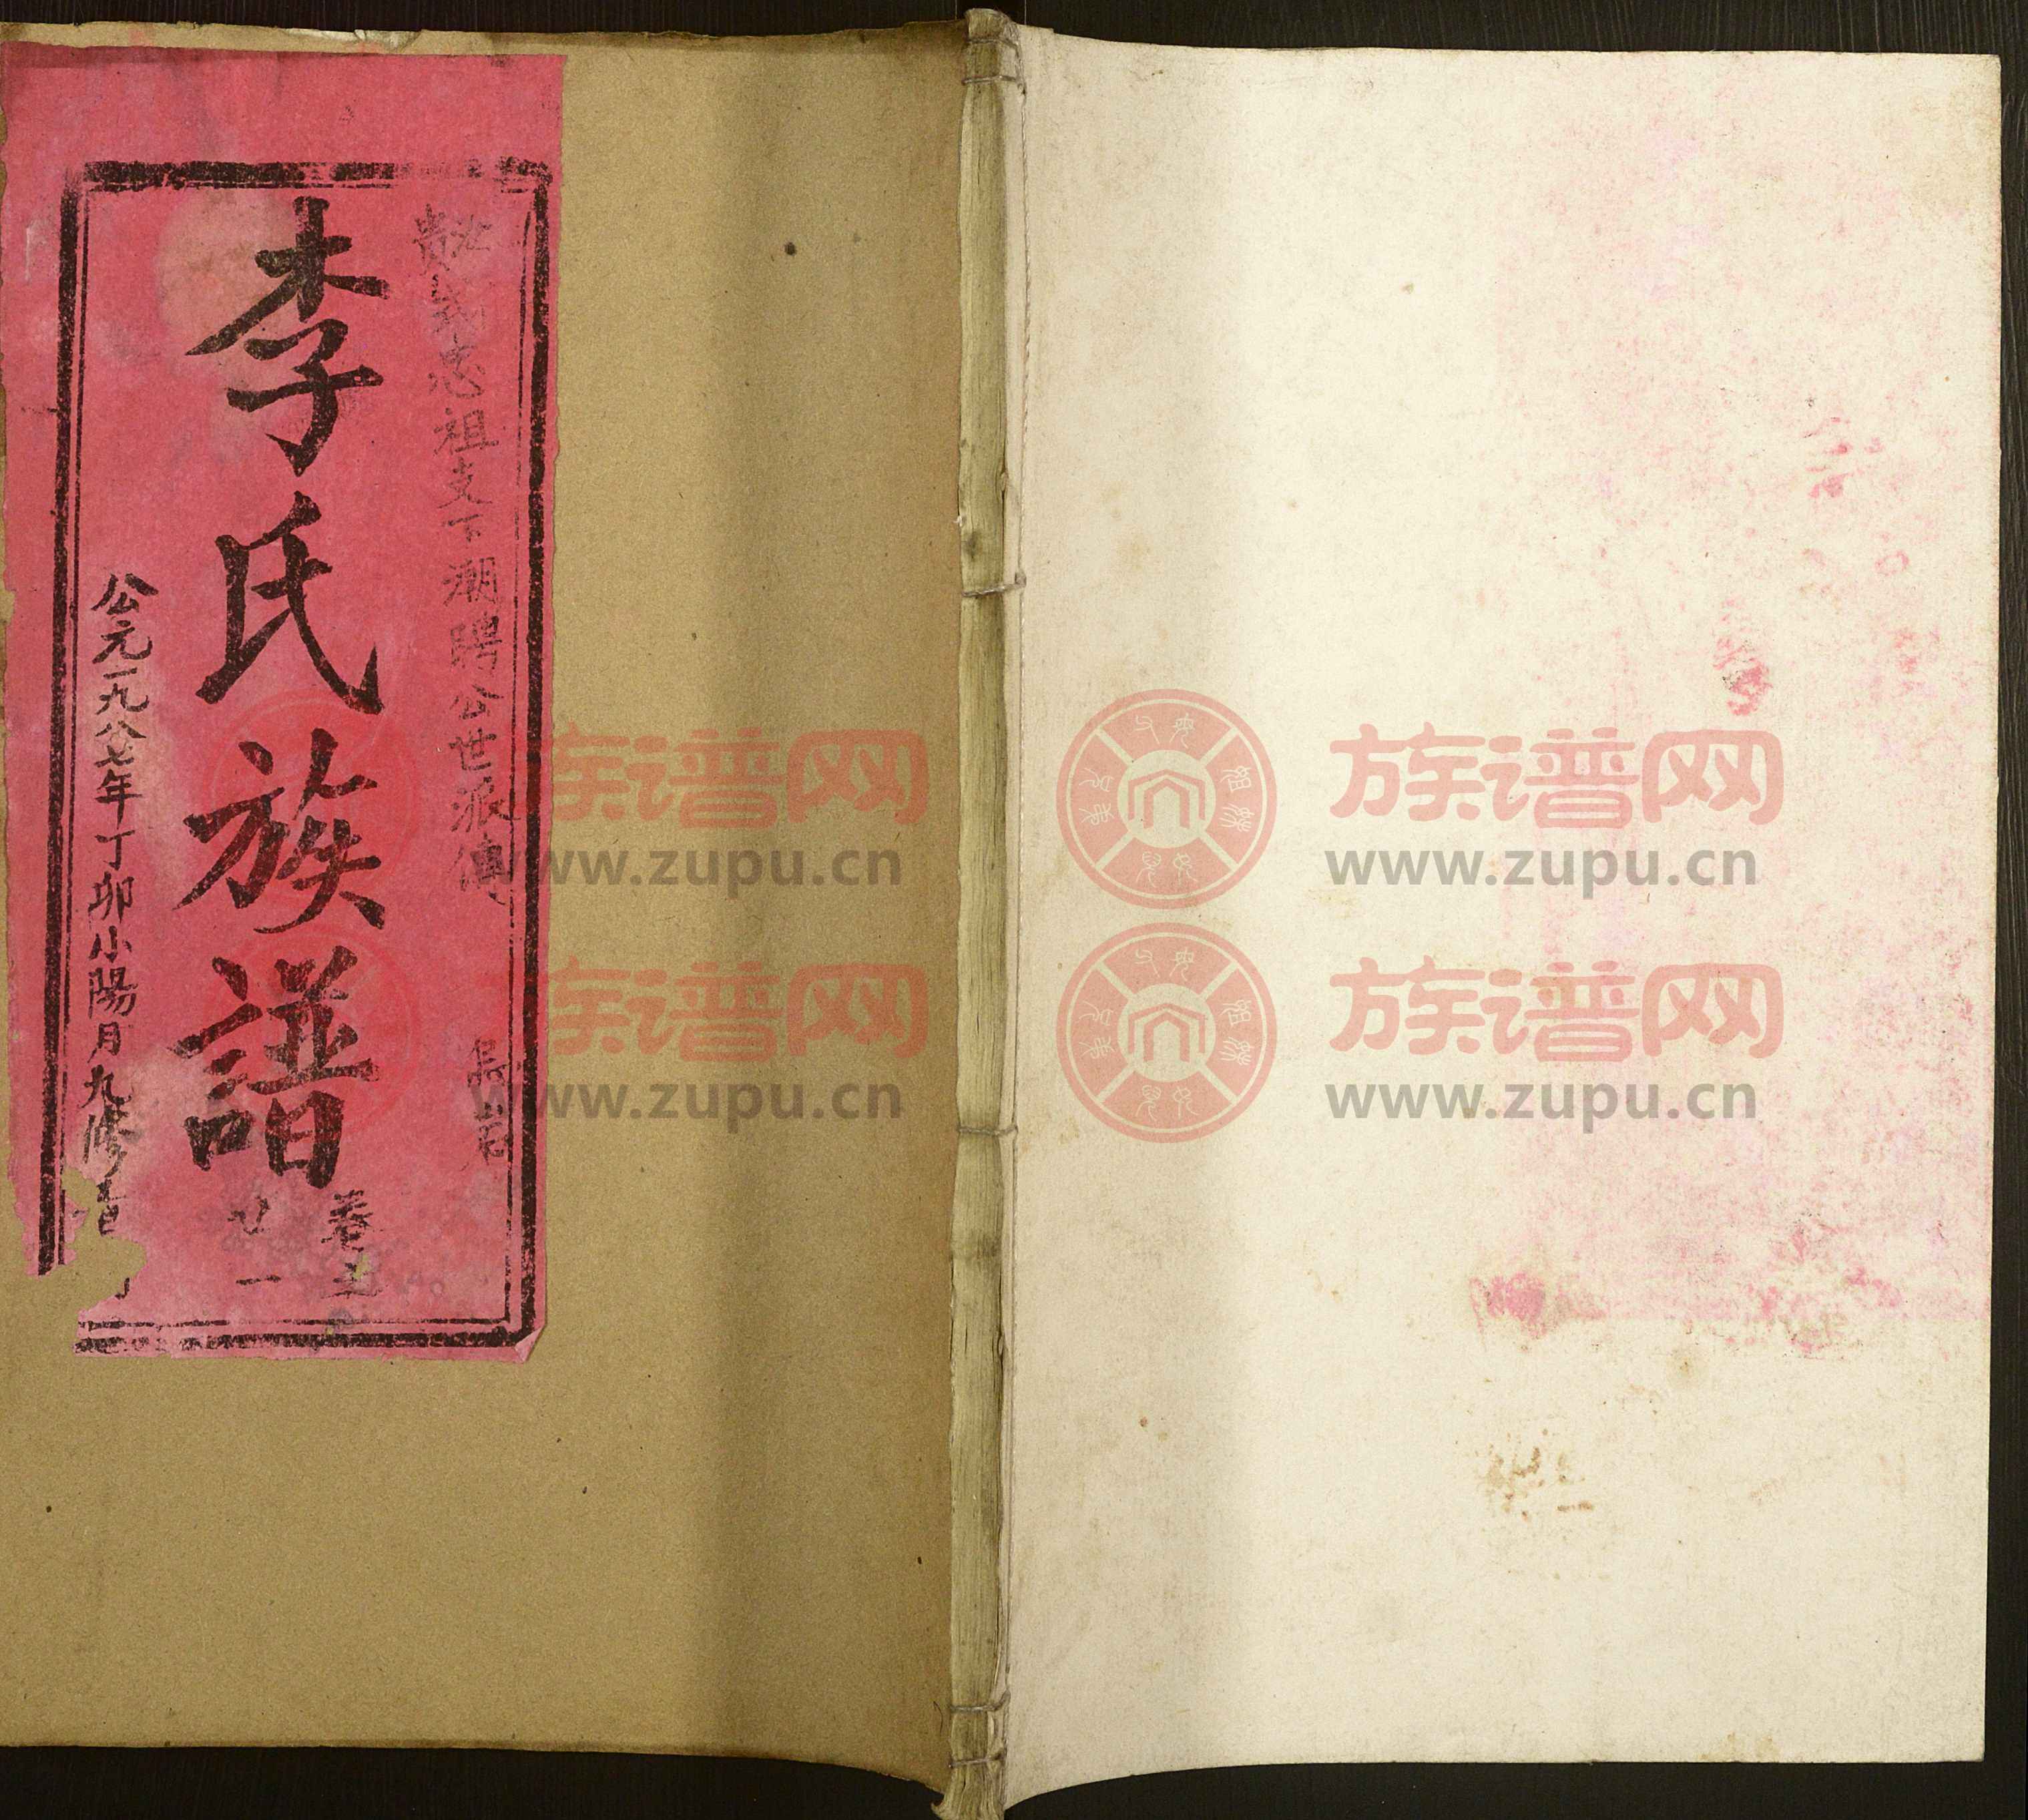 志祖支下潮聘公世派傳
李氏族譜
卷
廿一
公元一九八七年丁卯小陽月九修
族谱网
www.zupu.cn
族谱网
www.zupu.cn
族谱网
www.zupu.cn
族谱网
www.zupu.cn